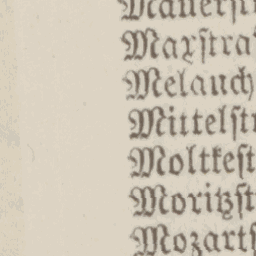 Mauerstr
Maxstra
Melanch
Mittelstr
Moltkest
Moritzst
Mozarts